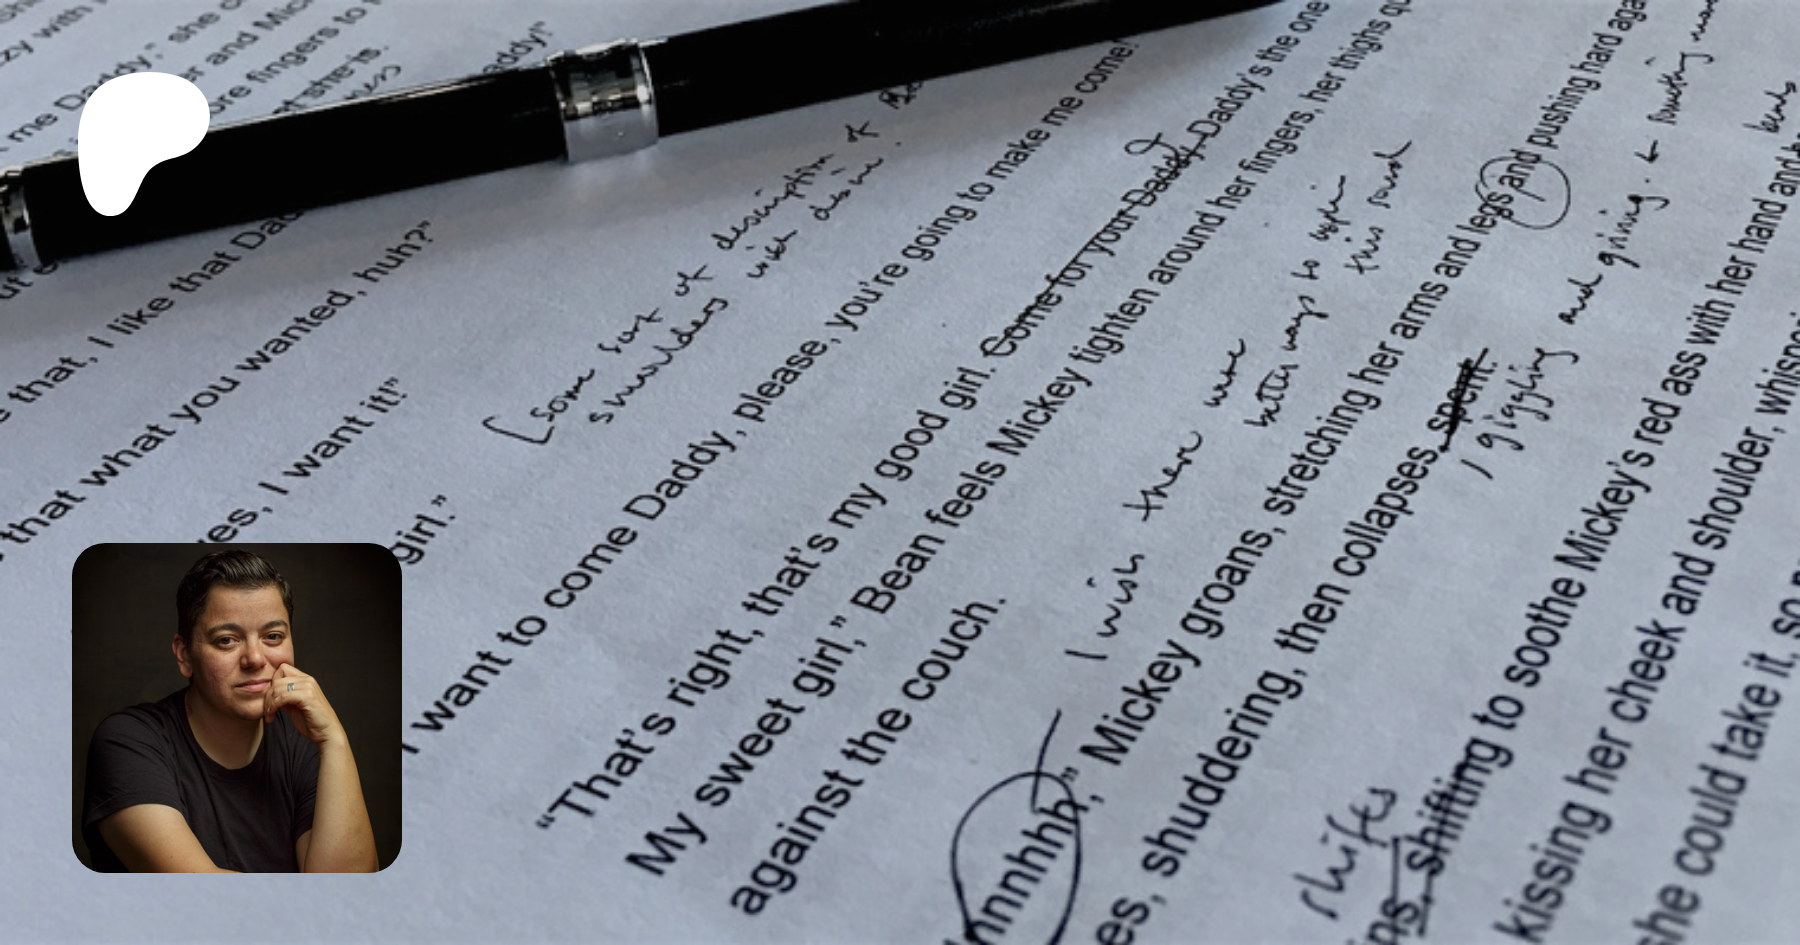 me Daddy," she
er and Mic
ore fingers to
t she is.
addy!"
e that, I like that Dad
that what you wanted, huh?"
es, I want it!"
girl."
[some sort of description of
smoulders with desire.
I want to come Daddy, please, you're going to make me come!
"That's right, that's my good girl. Come for your Daddy. Daddy's the one
My sweet girl," Bean feels Mickey tighten around her fingers, her thighs
against the couch.
I wish there were
better ways to
this sound
nnnhhh," Mickey groans, stretching her arms and legs and pushing hard aga
es, shuddering, then collapses, spent.
giggling and giving.
shifts
shifting to soothe Mickey's red ass with her hand and
kissing her cheek and shoulder, whispe
she could take it, so